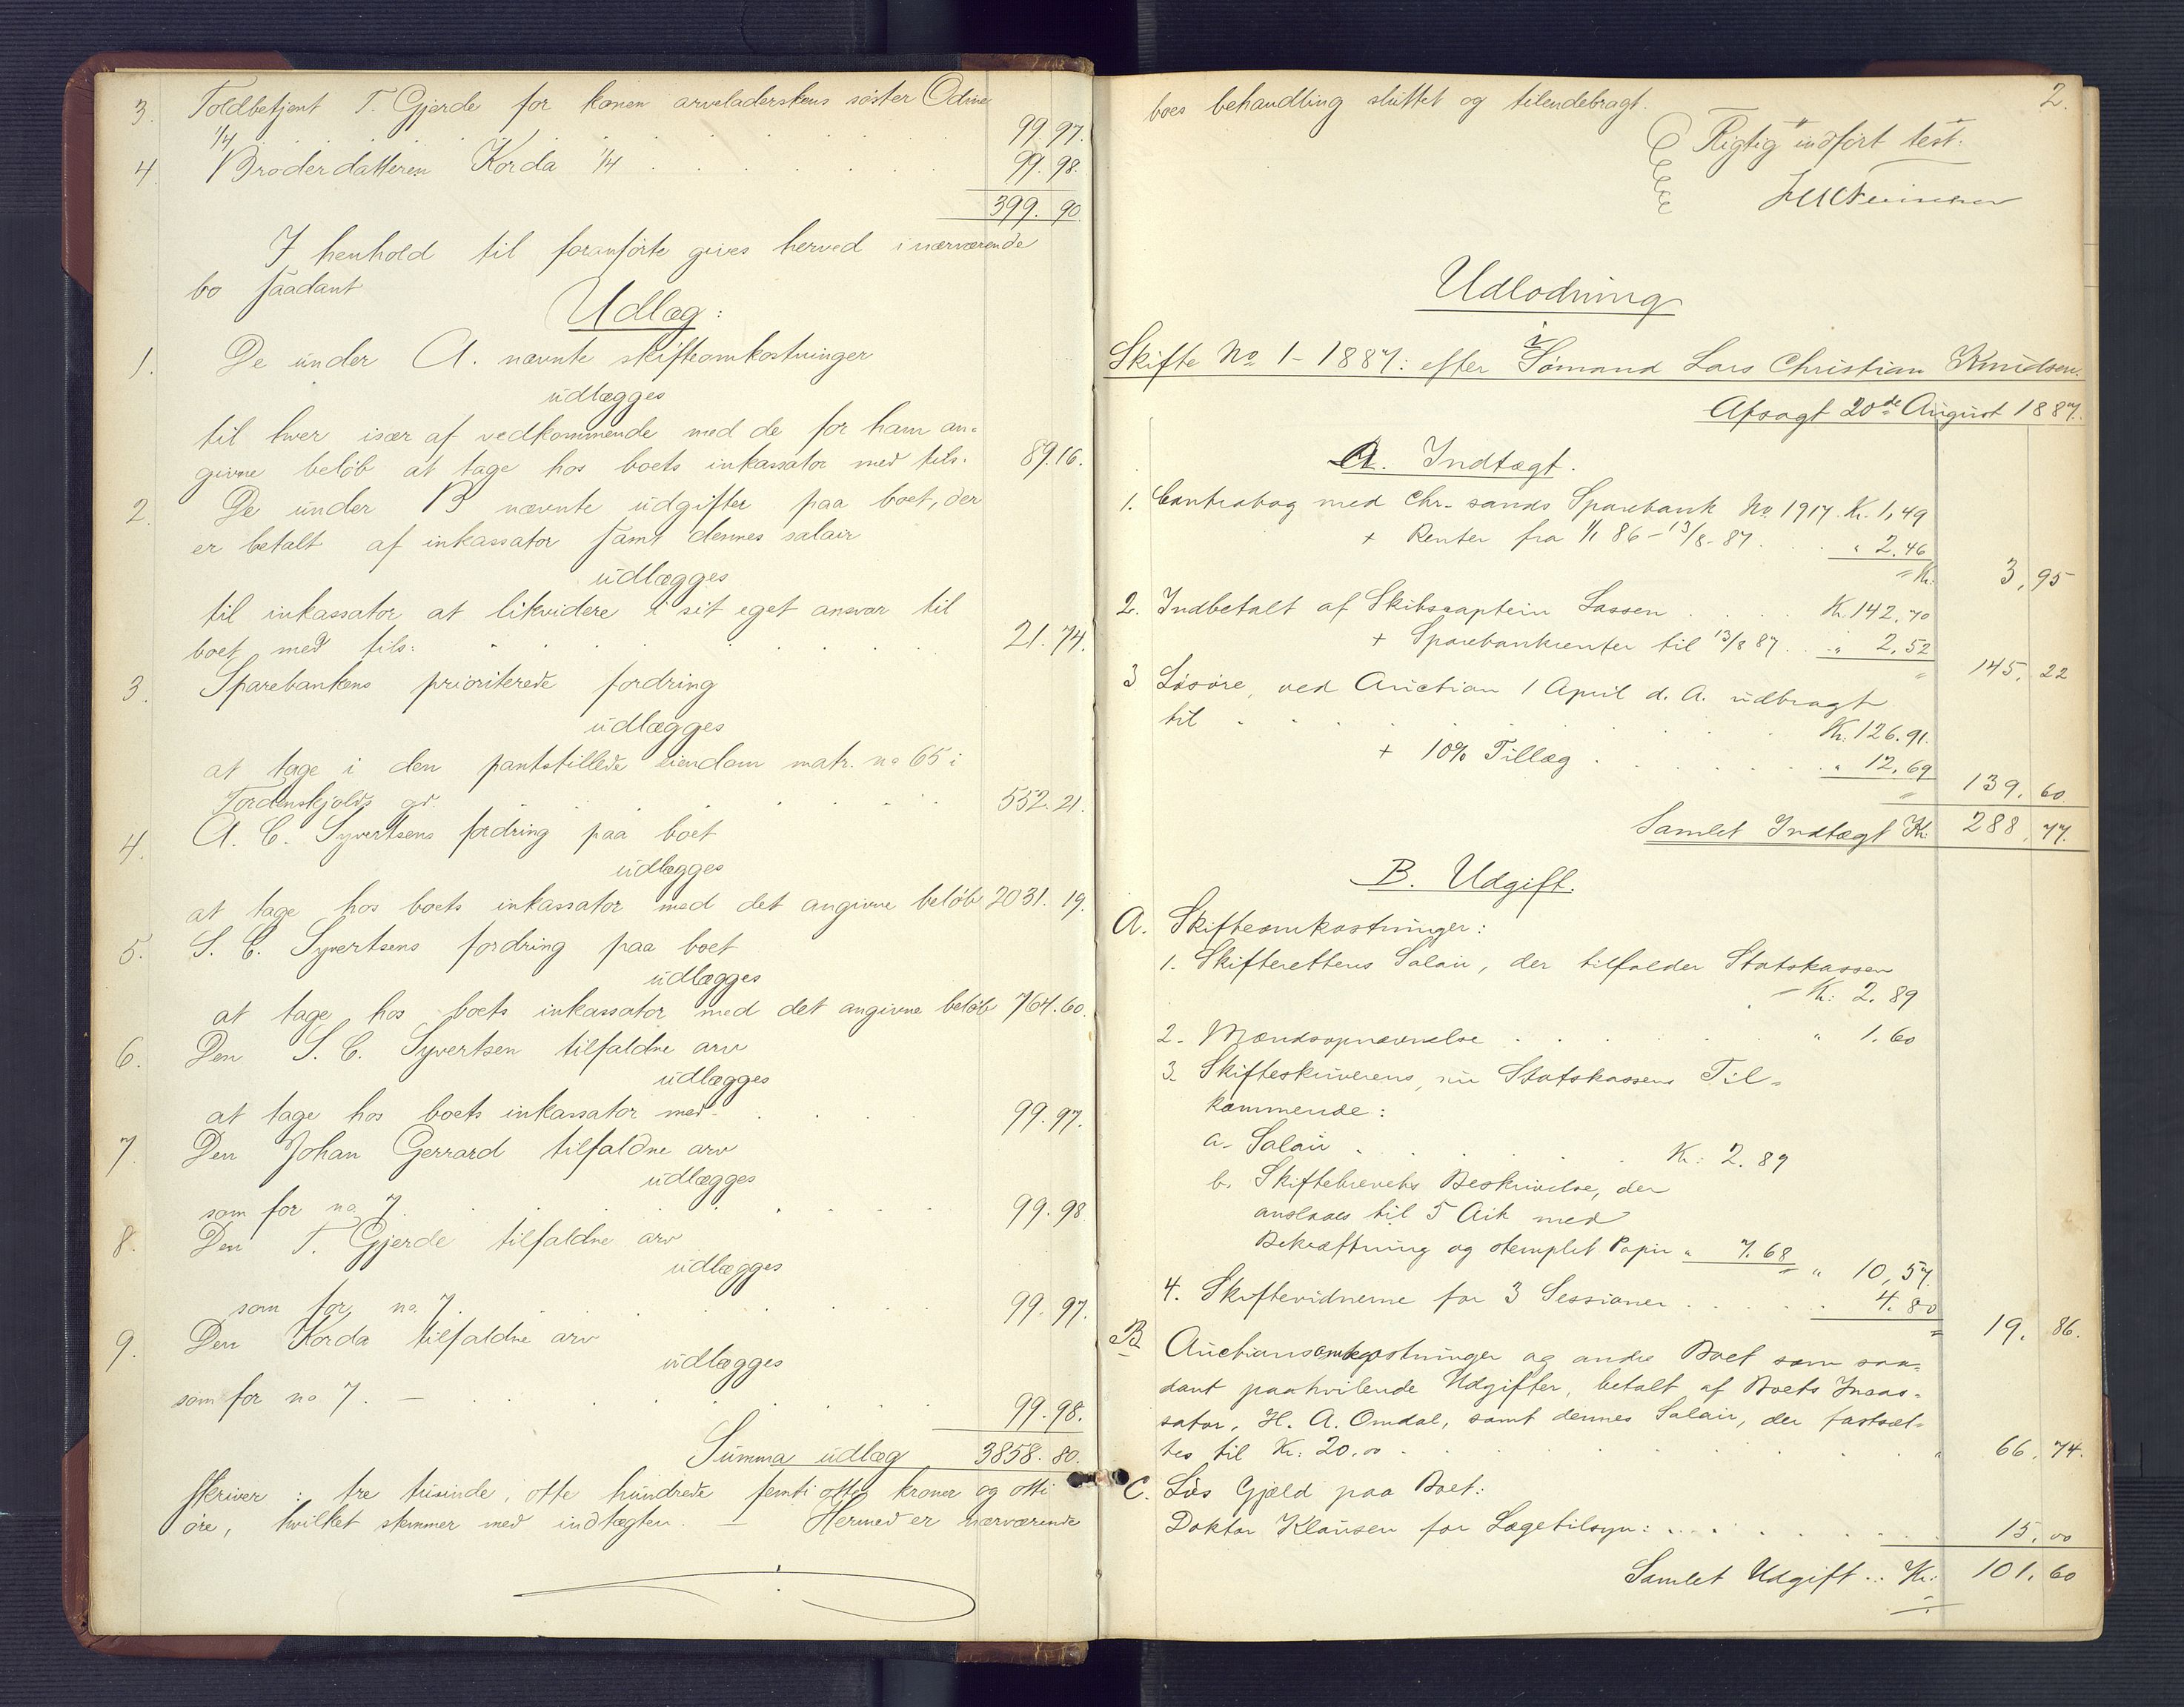 3. Toldbetjent T. Gjerde for konen arveladerskens søster Odine
1/4 . . . . . 99. 97.
4. Broderdatteren Korda 1/4 . . . . . 99. 98.
399. 90
I henhold til foranførte gives herved i nærværende
bo saadant
Udlæg:
1. De under A. nævnte skifteomkostninger
udlægges
til hver især af vedkommende med de for ham an-
givne beløb at tage hos boets inkassator med tils. 89. 16.
2. De under B nævnte udgifter paa boet, der
er betalt af inkassator samt dennes salair
udlægges
til inkassator at likvidere i sit eget ansvar til
boet med tils: . . . . . 21. 74.
3. Sparebankens prioriterede fordring
udlægges
at tage i den pantstillede eiendom matr. no 65 i
Tordenskjolds gd. . . . . . 552. 21.
4. A. C. Syvertsens fordring paa boet
udlægges
at tage hos boets inkassator med det angivne beløb 2031. 19.
5. S. C. Syvertsens fordring paa boet
udlægges
at tage hos boets inkassator med det angivne beløb 764. 60.
6. Den S. C. Syvertsen tilfaldne arv
udlægges
at tage hos boets inkassator med . . . . 99. 97.
7. Den Johan Gerrard tilfaldne arv
udlægges
som for no. 7. . . . . . 99. 98
8. Den T. Gjerde tilfaldne arv
udlægges
som for no. 7. . . . . . 99. 97.
9. Den Korda tilfaldne arv
udlægges
som for no 7. — . . . . . 99. 98.
Summa udlæg 3858. 80.
Skriver: tre tusinde, otte hundrede femti otte kroner og otti
øre, hvilket stemmer med indtægten. — Hermed er nærværende
2.
boes behandling sluttet og tilendebragt.
Rigtig indført test:
Udlodning
i
Skifte No 1 - 1887: efter Sømand Lars Christian Knudsen.
Afsagt 20de August 1887.
A. Indtægt.
1. Contrabog med Chr. sands Sparebank No 1917. Kr. 1,49
+ Renter fra 1/1 86 - 13/8 - 87 . . . " 2.46
= Kr. 3, 95
2. Indbetalt af Skibscaptein Lassen . . . . Kr. 142,70
+ Sparebankrenter til 13/8 87 . . " 2,52
" 145, 22
3 Løsøre, ved Auction 1 April d. A. udbragt
til . . . . . Kr. 126.91.
+ 10% Tillæg . . . . . " 12,69
" 139, 60
Samlet Indtægt Kr. 288, 77.
B. Udgift.
A. Skifteomkostninger:
1. Skifterettens Salair, der tilfalder Statskassen
- Kr: 2. 89
2. Mændsopnævnelse . . . . . " 1. 60
3. Skifteskriverens, nu Statskassens Til-
kommende:
a. Salair . . . . . Kr: 2. 89
b. Skiftebrevets Beskrivelse, der
anslaaes til 5 Ark med
Bekræftning og stemplet Papir " 7. 68
" 10, 57.
4. Skiftevidnerne for 3 Sessioner . . . . . 4. 80
= 19. 86.
B. Auctionsomkostninger og andre Boet som saa-
dant paahvilende Udgifter, betalt af Boets Incas-
sator, H. A. Omdal, samt dennes Salair, der fastsæt-
tes til Kr: 20.00 . . . . . " 66, 74.
C. Løs Gjæld paa Boet:
Doktor Klausen for Lægetilsyn: . . . . . 15, 00
Samlet Udgift .. Kr: 101. 60